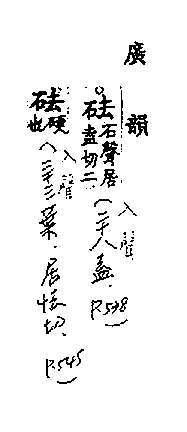 廣韻
砝石聲居盍切二
入聲
(二十八盍.P.538)
砝硬也
入聲
(三十三業.居怯切.P.545)